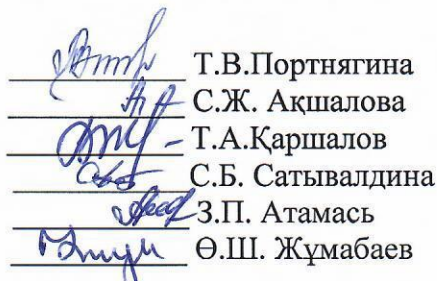 Т.В.Портнягина
С.Ж. Ақшалова
Т.А.Қаршалов
С.Б. Сатывалдина
З.П. Атамась
Ө.Ш. Жұмабаев